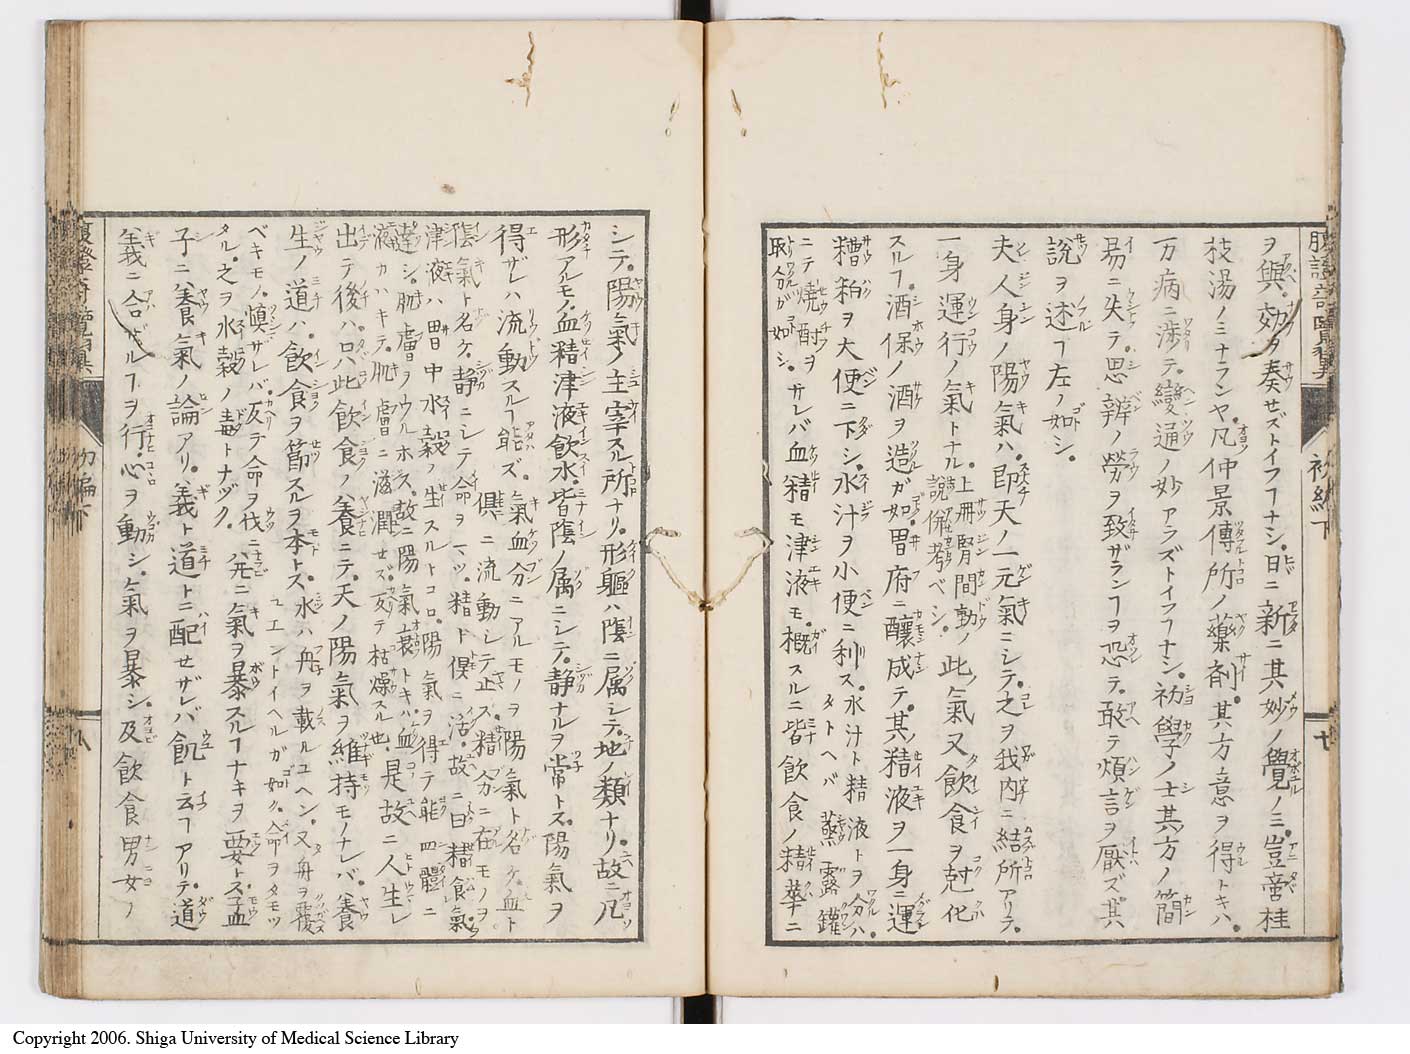 ヲ與。効ヲ奏セズトイフヿナシ。日ニ新ニ其妙ノ覺ノミ。豈啻桂
枝湯ノミナランヤ。凡仲景傳所ノ藥剤。其方意ヲ得トキハ。
万病ニ渉テ。變通ノ妙アラズトイフヿナシ。初學ノ士其方ノ簡
易ニ失テ。思辨ノ勞ヲ致ザランヿヲ恐テ。敢テ煩言ヲ厭ズ。其
説ヲ述ヿ左ノ如シ。
夫人身ノ陽氣ハ。即天ノ一元氣ニシテ。之ヲ我内ニ結所アリテ。
一身運行ノ氣トナル。上冊腎間動ノ説併考ベシ。此氣又飲食ヲ尅化
スルヿ。酒保ノ酒ヲ造ガ如。胃府ニ釀成テ。其精液ヲ一身ニ運
糟粕ヲ大便ニ下シ。水汁ヲ小便ニ利ス。水汁ト精液トヲ分ハ。タトヘバ蒸露鑵
ニテ燒酎ヲ取分ガ如シ。サレバ血精モ津液モ。概スルニ皆飲食ノ精華ニ
シテ。陽氣ノ主宰スル所ナリ。形軀ハ陰ニ属シテ。地ノ類ナリ。故ニ凡
形アルモノ血精津液飲水。皆陰ノ属ニシテ。静ナルヲ常トス。陽氣ヲ
得ザレハ流動スルヿ能ズ。氣血分ニアルモノヲ陽氣ト名ケ。血ト俱ニ流動シテ止ズ。精分ニ在モノヲ
陰氣ト名ケ。静ニシテ命ヲマツ。精ト俱ニ活。故ニ曰精食氣。
津液ハ胃中水穀ノ生スルトコロ。陽氣ヲ得テ能四體ニ
達シ。肌膚ヲウルホス。故ニ陽氣衰トキハ。血
液カハキテ。肌膚ニ滋潤セズ。反テ枯燥スル也。是故ニ人生レ
出テ後ハ。只此飲食ノ養ニテ。天ノ陽氣ヲ維持モノナレバ。養
生ノ道ハ。飲食ヲ節スルヲ本トス。水ハ舟ヲ載ルユヘン。又舟ヲ覆ユエントイヘルガ如ク。命ヲタモツ
ベキモノ。慎サレバ。反テ命ヲ伐ニナラビタル。之ヲ水穀ノ毒トナヅク。
并ニ氣ヲ暴スルヿナキヲ要トス。孟
子ニハ養氣ノ論アリ。義ト道トニ配セザレバ飢ト云ヿアリテ。道
義ニ合ザルヿヲ行。心ヲ動シ。氣ヲ暴シ。及飲食男女ノ
初編下
Copyright 2006. Shiga University of Medical Science Library